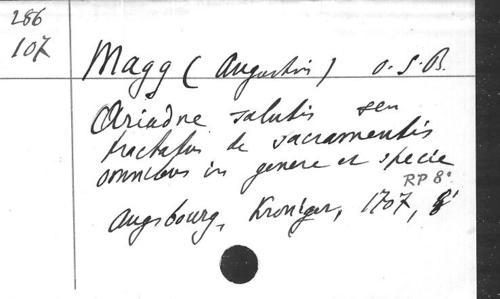 286
107
Magg (Augustin) O.S.B.
Ariadne salutis seu
tractatus de sacramentis
omnibus in genere et specie
RP 8°
Augsbourg, Kroniger, 1707, 8°